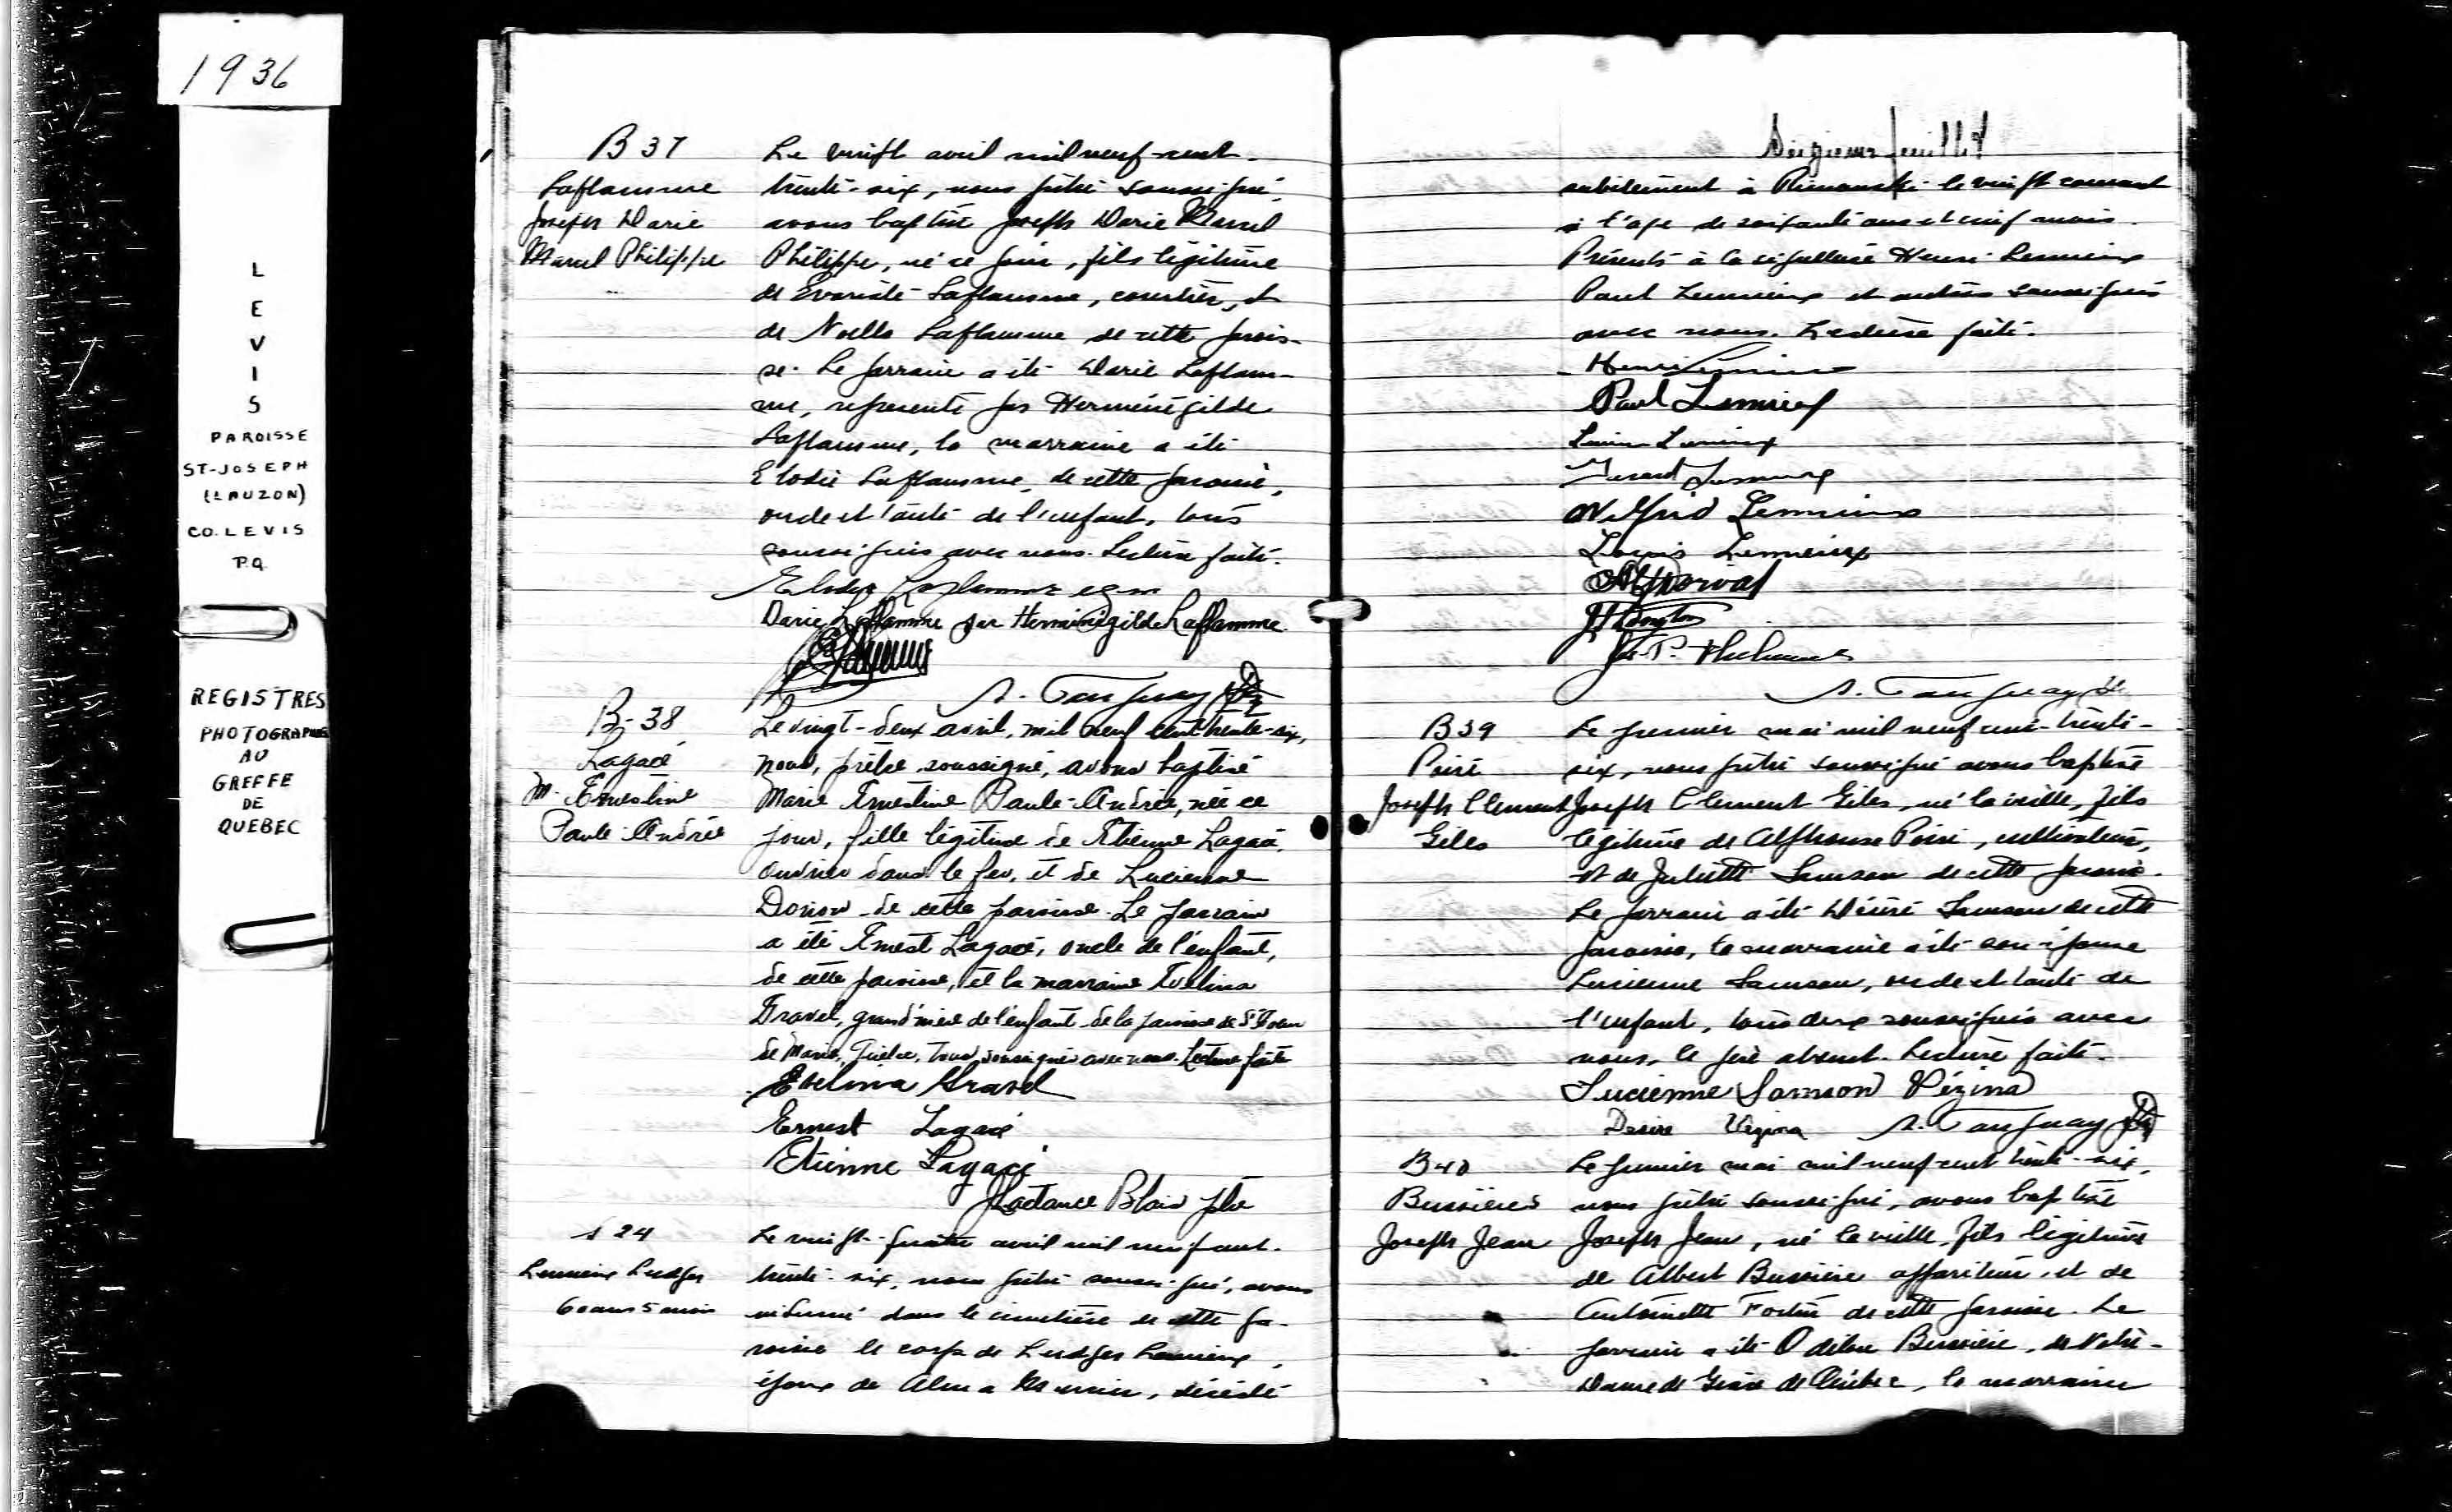 1936
L
E
V
I
S
PAROISSE
ST-JOSEPH
(LAUZON)
CO. LEVIS
P.Q.
REGISTRES
PHOTOGRAPHIES
AU
GREFFE
DE
QUEBEC
B 37
Laflamme
Joseph Darie
Marcel Philippe
Le vingt avril mil neuf-cent-
trente-six, nous prêtre soussigné,
avons baptisé Joseph Darie Marcel
Philippe, né ce jour, fils légitime
de Evariste Laflamme, courtier, et
de Noella Laflamme de cette parois-
se. Le parrain a été Darie Laflam-
me, représenté par Herménégilde
Laflamme, la marraine a été
Elodie Laflamme, de cette paroisse,
oncle et tante de l'enfant, tous
soussignés avec nous. Lecture faite.
Elodie Laflamme
Darie Laflamme par Herménégilde Laflamme
A. Tanguay Ptre
B-38
Lagacé
M. Ernestine
Paule-Andrée
Le vingt-deux avril, mil neuf cent trente-six,
nous, prêtre soussigné, avons baptisé
Marie Ernestine Paule-Andrée, née ce
jour, fille légitime de Etienne Lagacé,
ouvrier dans le fer, et de Lucienne
Dorion de cette paroisse. Le parrain
a été Ernest Lagacé, oncle de l'enfant,
de cette paroisse, et la marraine Evelina
Gravel, grand'mère de l'enfant de la paroisse de St Coeur
de Marie, Québec, tous soussignés avec nous. Lecture faite
Evelina Gravel
Ernest Lagacé
Etienne Lagacé
J Lactance Blais ptre
S 24
Lemieux Ludger
60 ans 5 mois
Le vingt-quatre avril mil neuf cent-
trente-six, nous prêtre soussigné, avons
inhumé dans le cimetière de cette pa-
roisse le corps de Ludger Lemieux,
époux de Alma Mercier, décédé
Dixième feuillet
subitement à Rimouski le vingt courant
à l'âge de soixante ans et cinq mois.
Présents à la sépulture Henri Lemieux
Paul Lemieux et autres soussignés
avec nous. Lecture faite.
Henri Lemieux
Paul Lemieux
Lemieux
Gérard Lemieux
Wilfrid Lemieux
Louis Lemieux
A. Tanguay Ptre
B 39
Poiré
Joseph Clement
Giles
Le premier mai mil neuf cent-trente-
six, nous prêtre soussigné avons baptisé
Joseph Clement Giles, né la veille, fils
légitime de Alphonse Poiré, cultivateur,
et de Juliette Samson de cette paroisse.
Le parrain a été Désiré Samson de cette
paroisse, la marraine a été son épouse
Lucienne Samson, oncle et tante de
l'enfant, tous deux soussignés avec
nous, le père absent. Lecture faite.
Lucienne Samson Vézina
Desire Vézina A. Tanguay Ptre
B 40
Bussières
Joseph Jean
Le premier mai mil neuf-cent trente-six,
nous prêtre soussigné, avons baptisé
Joseph Jean, né la veille, fils légitime
de Albert Bussière appariteur, et de
Antoinette Fortin de cette paroisse. Le
parrain a été Odilon Bussière, de Notre-
Dame de Grâce de Québec, la marraine